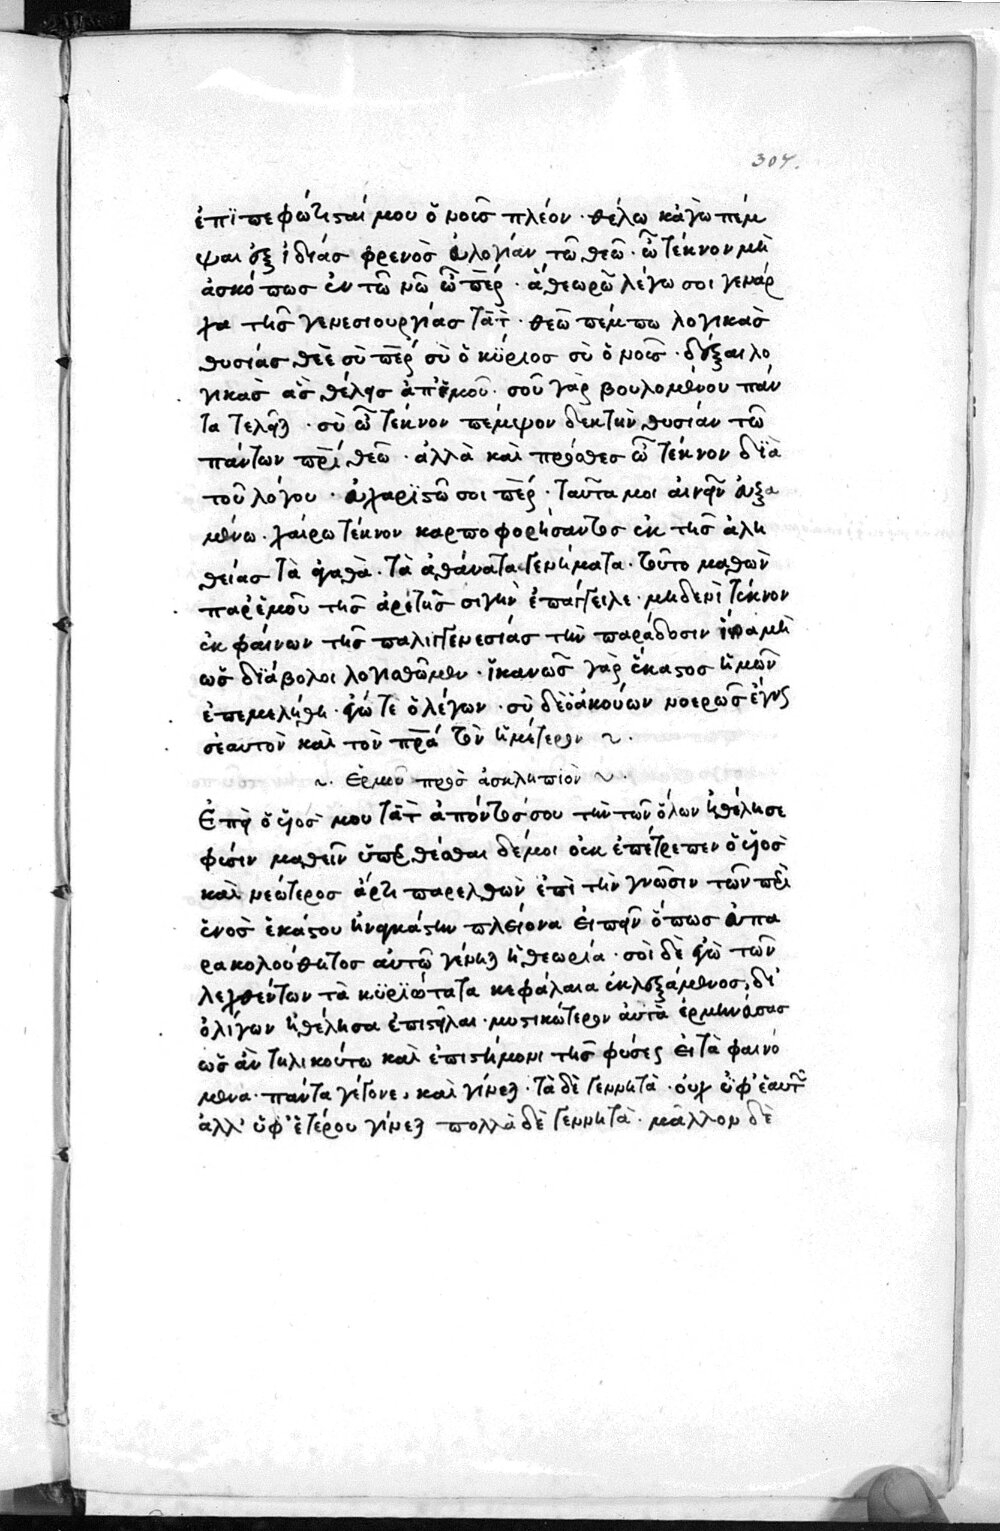 307.
ἐπϊπεφώτισταί μου ὁ νοῦς πλέον · θέλω κἀγὼ πέμ
ψαι ἐξ ἰδίας φρενὸς εὐλογίαν τῶ θεῶ · ὦ τέκνον μὴ
ἀσκόπως ἐν τῶ νῶ ὦ περ · ἃ θεωρῶ λέγω σοι γενάρ
χα τῆς γενεσιουργίας τὰτ · θεῶ πέμπω λογικὰς
θυσίας θεὲ σὺ περ σὺ ὁ κύριος σὺ ὁ νοῦς · δέξαι λο
γικὰς ἃς θέλεις ἀπ' ἐμοῦ · σοῦ γὰρ βουλομένου πάν
τα τελεῖται · σὺ ὦ τέκνον πέμψον δεκτὴν θυσίαν τῶ
πάντων πρὶ θεῶ · ἀλλὰ καὶ πρόσθες ὦ τέκνον διὰ
τοῦ λόγου · εὐχαριστῶ σοι περ · ταῦτα μοι αἰνεῖν εὐξα
μένω · χαίρω τέκνον καρποφορήσαντος ἐκ τῆς ἀλη
θείας τὰ ἀγαθὰ · τὰ ἀθάνατα γενήματα · τοῦτο μαθὼν
παρ' ἐμοῦ τῆς ἀρετῆς σιγὴν ἐπάγγειλε · μηδενὶ τέκνον
ἐκφαίνων τῆς παλιγγενεσίας τὴν παράδοσιν ἵνα μὴ
ὡς διάβολοι λογισθῶμεν · ἱκανῶς γὰρ ἕκαστος ἡμῶν
ἐπεμελήθη · ἐγώ τε ὁ λέγων · σὺ δὲ ὁ ἀκούων νοερῶς ἔγνως
σεαυτὸν καὶ τὸν πρα τὸν ἡμέτερον ~ ·
~ · Ἑρμοῦ πρὸς ἀσκληπιὸν ~ ·
Ἐπεὶ ὁ υἱός μου τὰτ ἀπόντος σου τὴν τῶν ὅλων ἠθέλησε
φύσιν μαθεῖν ὑπερθέσθαι δέ μοι οὐκ ἐπέτρεπεν ὁ υἱὸς
καὶ νεώτερος ἄρτι παρελθὼν ἐπὶ τὴν γνῶσιν τῶν περὶ
ἑνὸς ἑκάστου ἠναγκάσθην πλείονα εἰπεῖν ὅπως εὐπα
ρακολούθητος αὐτῶ γένηται ἡ θεωρία · σοὶ δὲ ἐγὼ τῶν
λεχθέντων τὰ κϋρϊώτατα κεφάλαια ἐκλεξάμενος, δι'
ὀλίγων ἠθέλησα ἐπιστεῖλαι · μυστικώτερον αὐτὰ ἑρμηνεύσας
ὡς ἂν τηλικούτω καὶ ἐπιστήμονι τῆς φύσεως εἰ τὰ φαινό
μενα · πάντα γέγονε, καὶ γίνεται · τὰ δὲ γεννητὰ · οὐχ ὑφ' ἑαυτῶν
ἀλλ' ὑφ' ἑτέρου γίνεται πολλὰ δὲ γεννητὰ · μᾶλλον δὲ